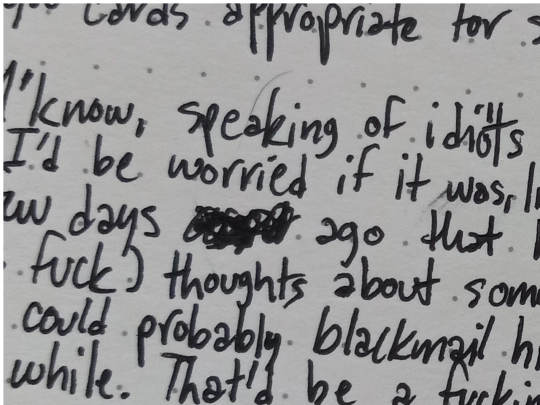 cards appropriate for s
Y'know, speaking of idiots
I'd be worried if it was, li
few days ago that I
fuck) thoughts about some
could probably blackmail hi
while. That'd be a fuckin